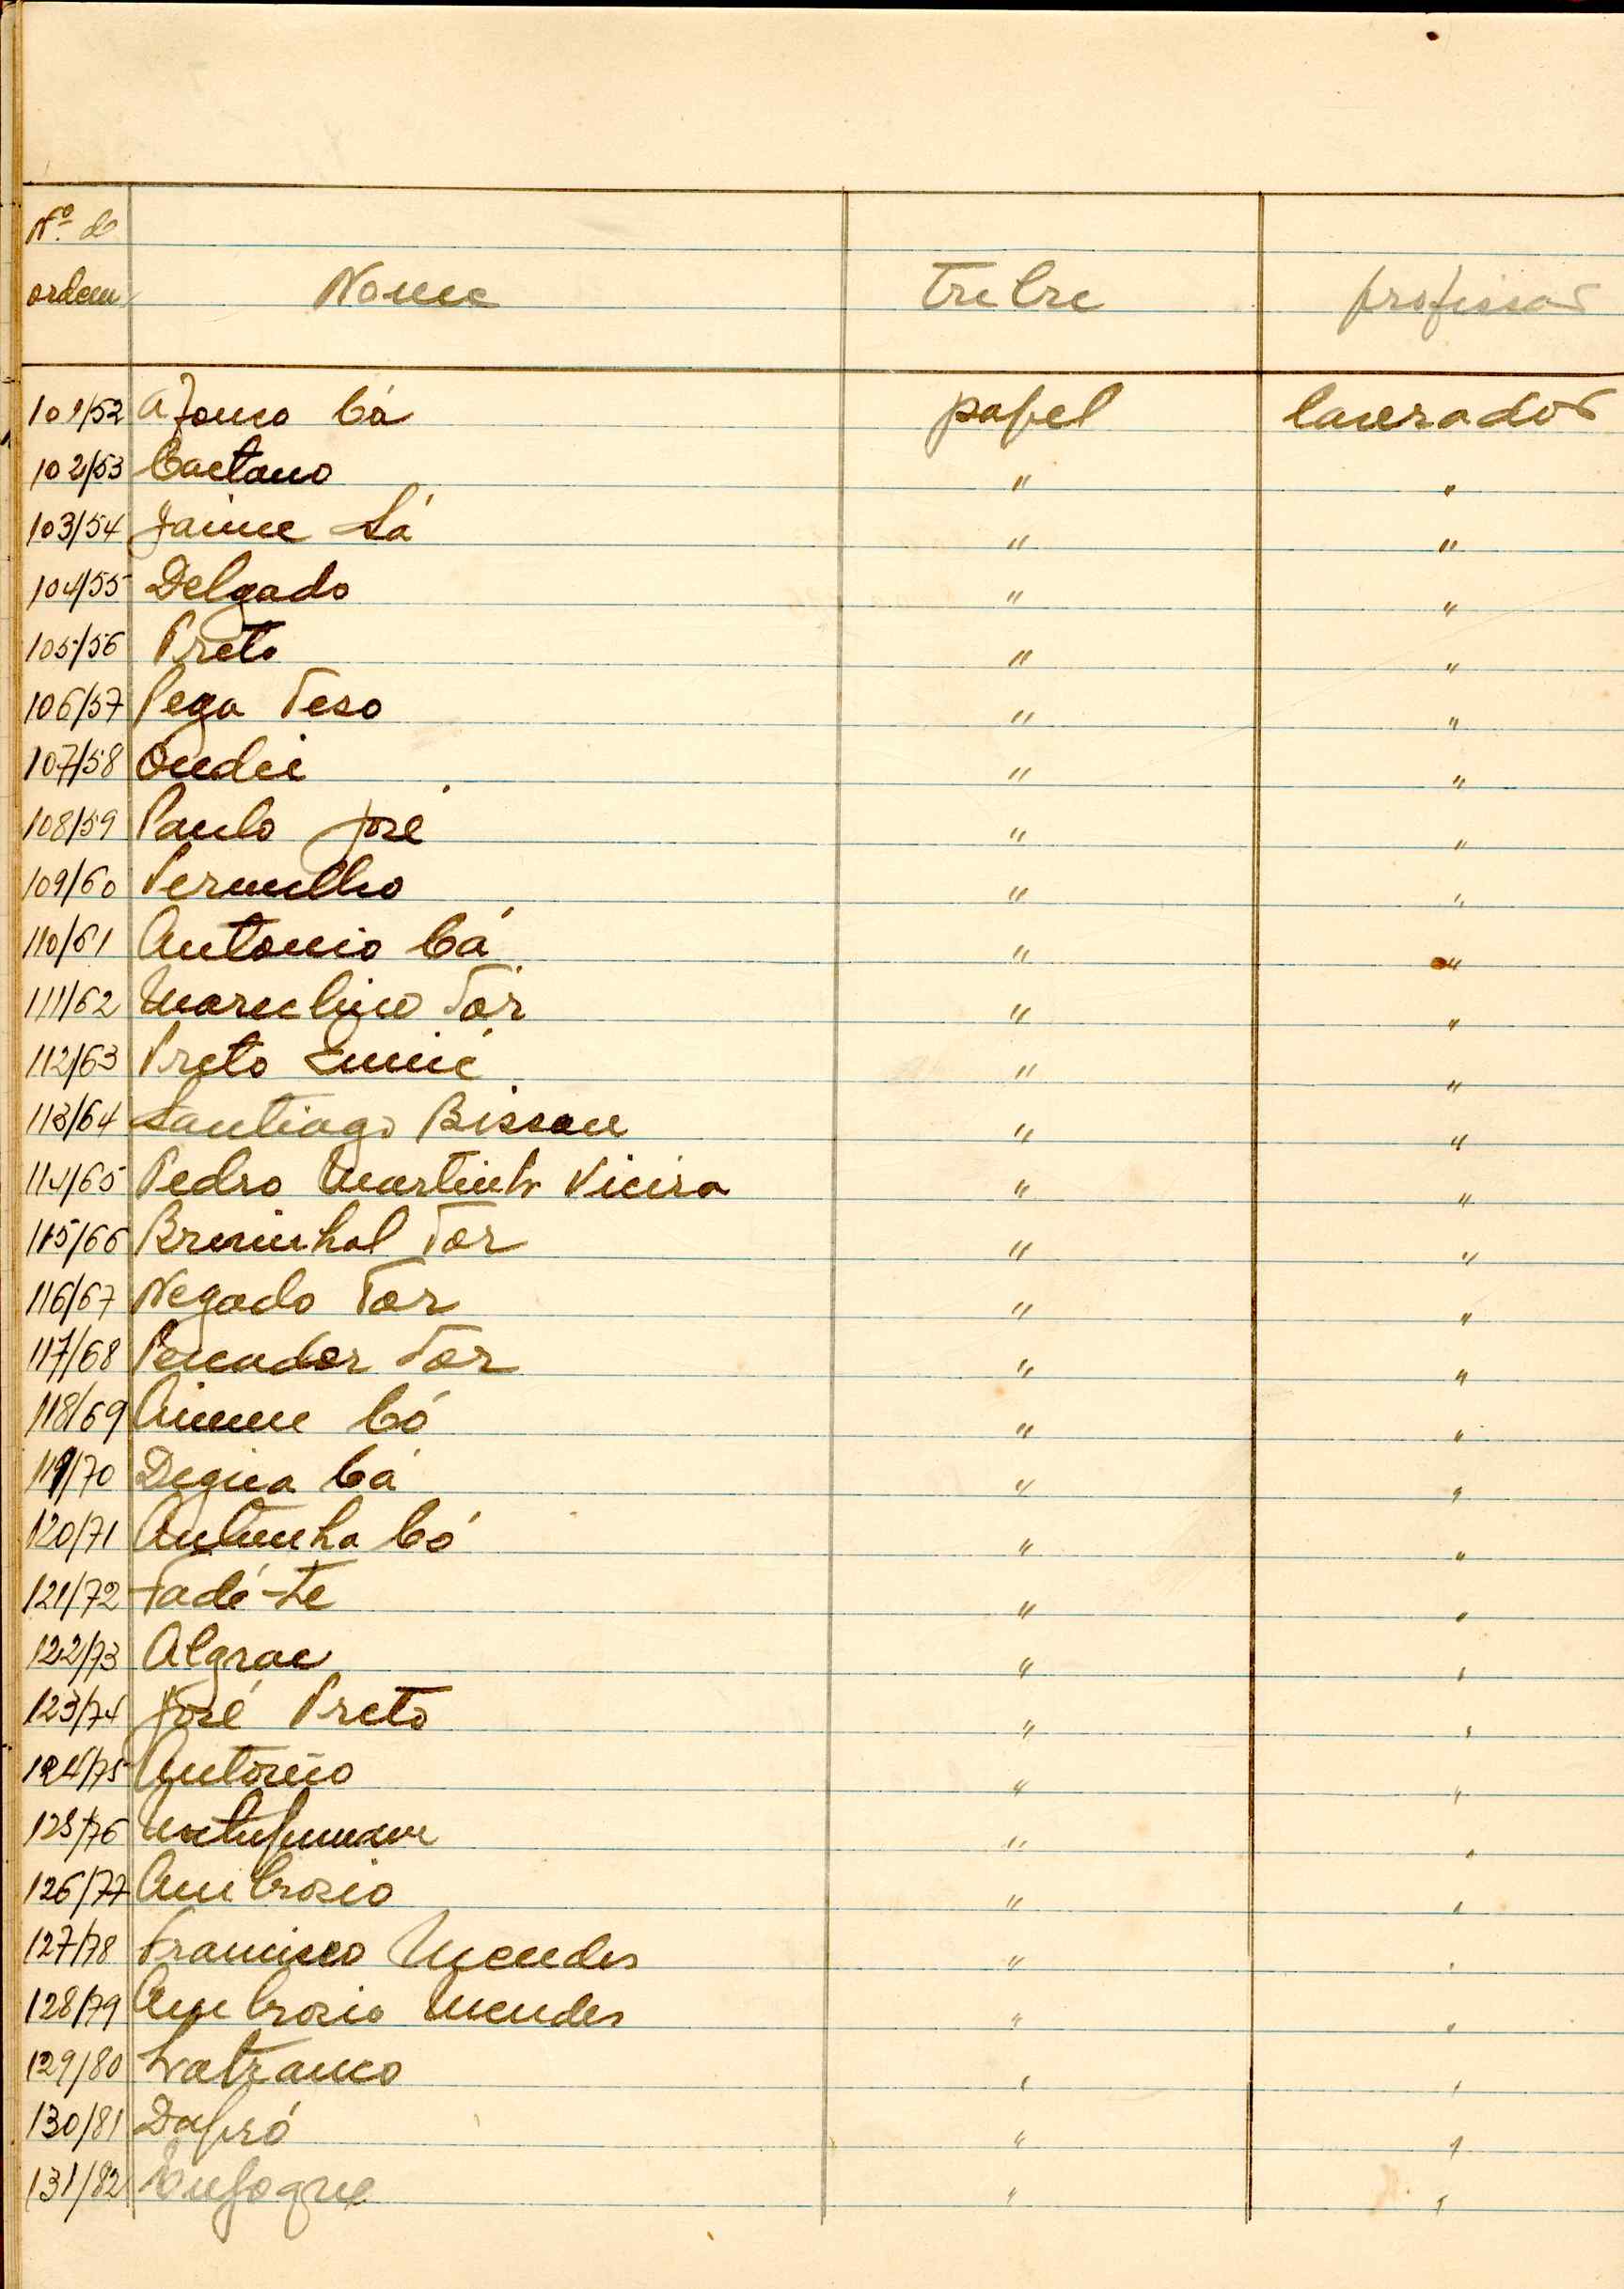 Nº de
ordem Nome Tribu profissão
101/52 Afonso Cá papel lavrador
102/53 Caetano " "
103/54 Jaime Sá " "
104/55 Delgado " "
105/56 Preto " "
106/57 Pega Teso " "
107/58 Ondi " "
108/59 Paulo José " "
109/60 Vermelho " "
110/61 Antonio Cá " "
111/62 Marcelino Tor " "
112/63 Preto " "
113/64 Santiago Bissau " "
114/65 Pedro Martinho Vieira " "
115/66 Tor " "
116/67 Negado Tor " "
117/68 Pecador Tor " "
118/69 Có " "
119/70 Cá " "
120/71 Antinha Có " "
121/72 Tadé-te " "
122/73 " "
123/74 José Preto " "
124/75 Antonio " "
125/76 " "
126/77 Ambrosio " "
127/78 Francisco Mendes " "
128/79 Ambrosio Mendes " "
129/80 " "
130/81 Dapró " "
131/82 " "